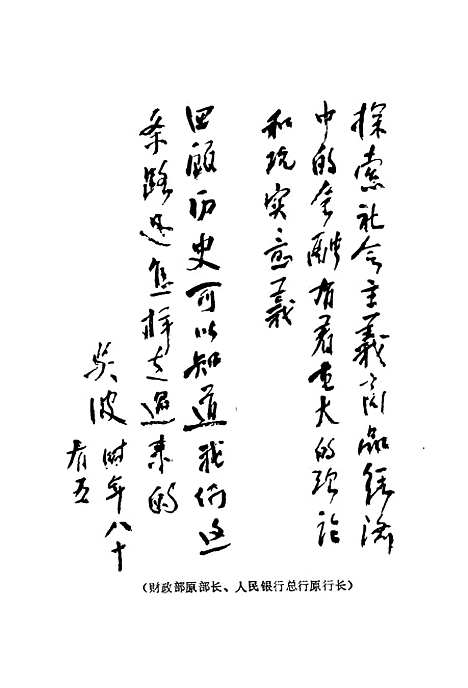 探索社会主義商品经济
中的金融有着重大的理论
和现实意義
回顾历史可以知道我们这
条路是怎样走过来的
吴波 时年八十
有五
(财政部原部长、人民银行总行原行长)